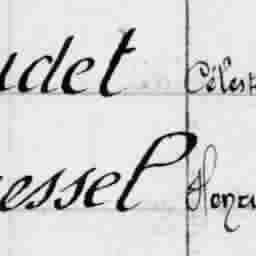 udet Céles
essel Honor